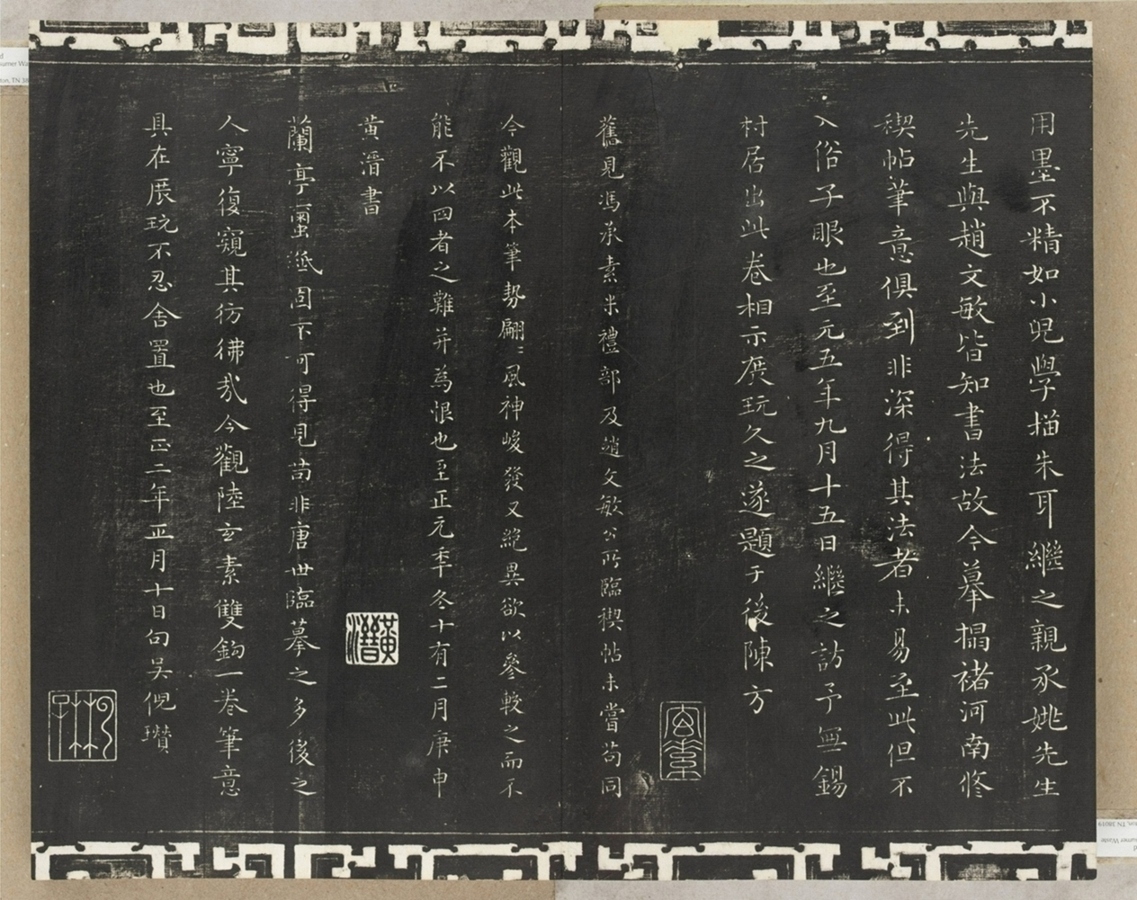 用墨不精如小兒學描朱耳繼之親承姚先生
先生與趙文敏皆知書法故今摹搨褚河南修
禊帖筆意俱到非深得其法者未易至此但不
入俗子眼也至元五年九月十五日繼之訪予無錫
村居出此卷相示展玩久之遂題于後陳方
舊見馮承素米禮部及趙文敏公所臨禊帖未嘗苟同
今觀此本筆勢翩〻風神峻發又絶異欲以參較之而不
能不以四者之難并為恨也至正元年冬十有二月庚申
黃溍書
黃溍
蘭亭蠒紙固不可得見苟非唐世臨摹之多後之
人寧復窺其彷彿哉今觀陸玄素雙鉤一卷筆意
具在展玩不忍舍置也至正二年正月十日句吳倪瓚